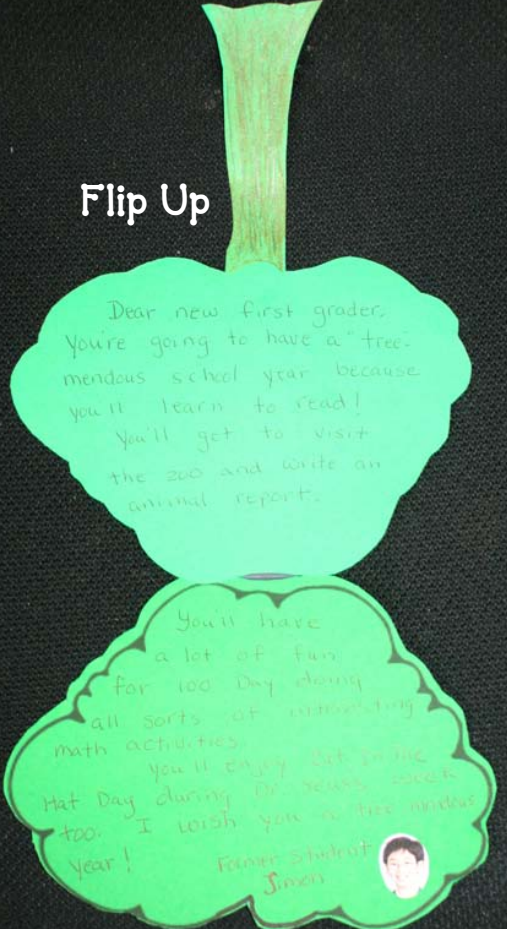 Flip Up
Dear new first grader,
You're going to have a "tree-
mendous school year because
you'll learn to read!
You'll get to visit
the zoo and write an
animal report.
You'll have
a lot of fun
for 100 Day doing
all sorts of interesting
math activities.
You'll enjoy Cat In The
Hat Day during Dr. Seuss week
too. I wish you a tree mendous
year!
Former Student
Simon